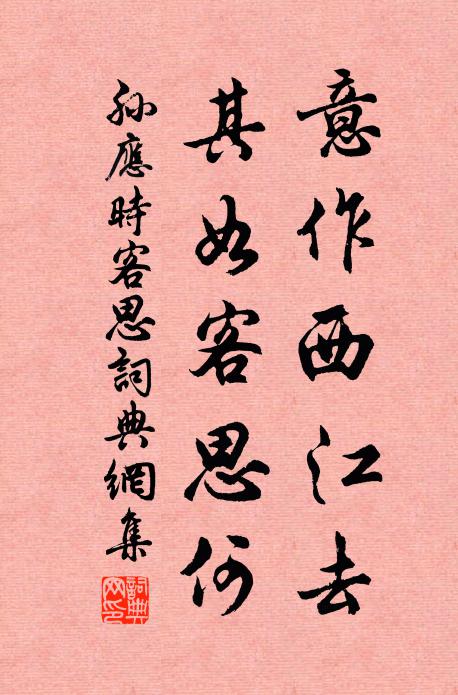 意作西江去
其如客思何
孫應時客思詞典網集
詞典網印